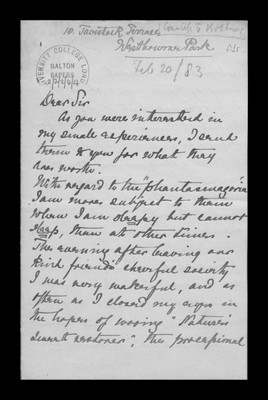 10. Tavistock Terrace
Westbourne Park
Feb 20/83
GALTON
PAPERS
Dear Sir
As you were interested in
my small experiences, I send
them to you for what they
are worth.
With regard to the "phantasmagoria"
I am more subject to them
when I am sleepy but cannot
sleep, than at other times.
The evening after leaving our
kind friend's cheerful society
I was very wakeful, and as
often as I closed my eyes in
the hopes of wooing "Nature's
sweet restorer", the processional